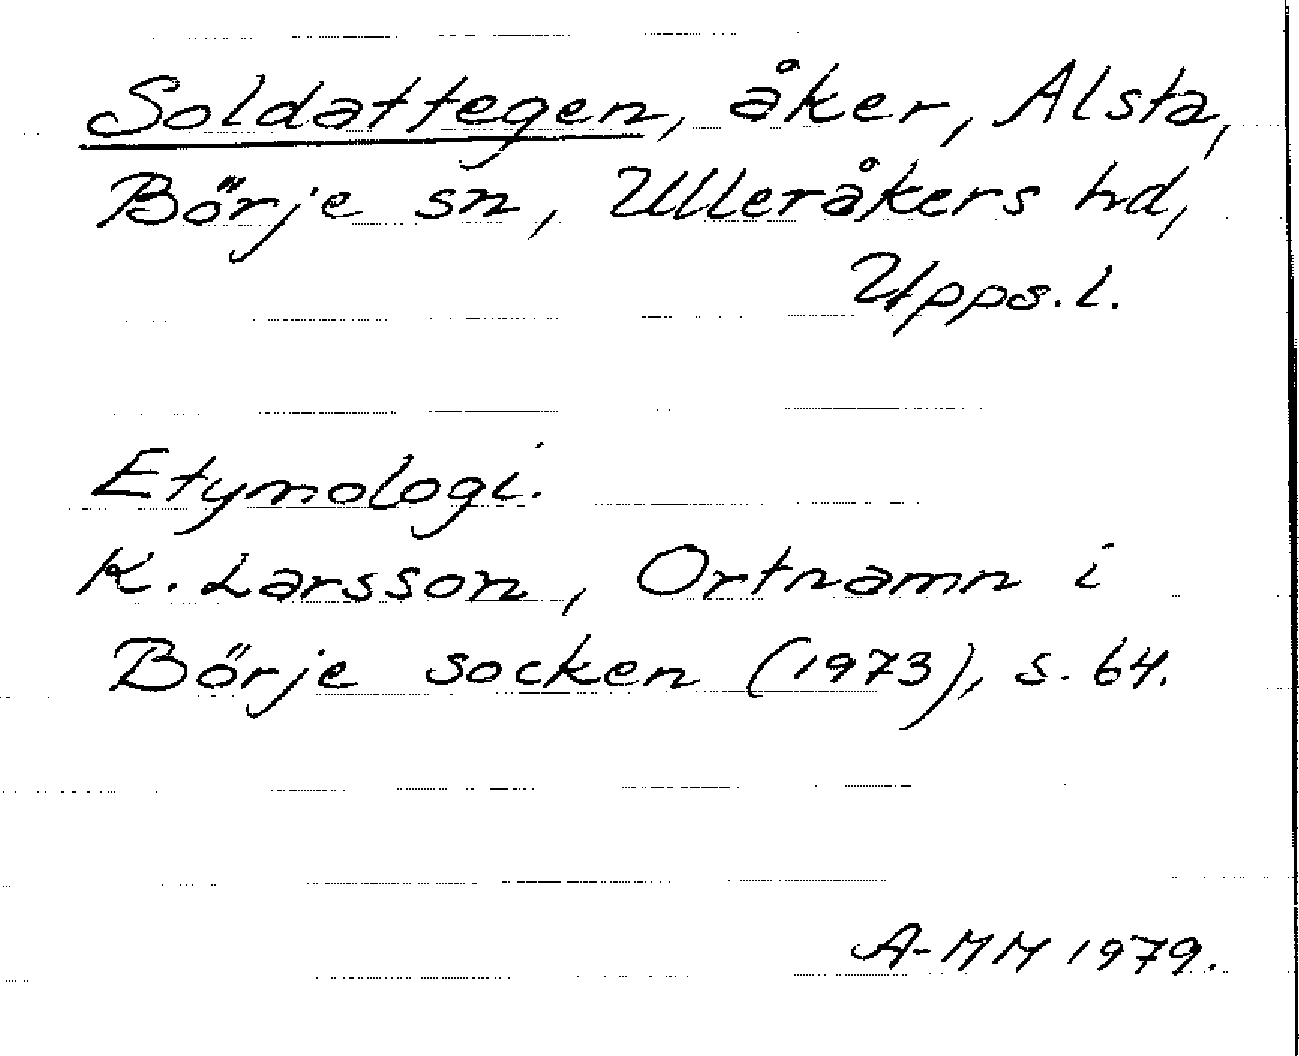 Soldattegen, åker, Alsta,
Börje sn, Ulleråkers hd,
Upps.l.
Etymologi.
K. Larsson, Ortnamn i
Börje socken (1973), s. 64.
A-MM 1979.